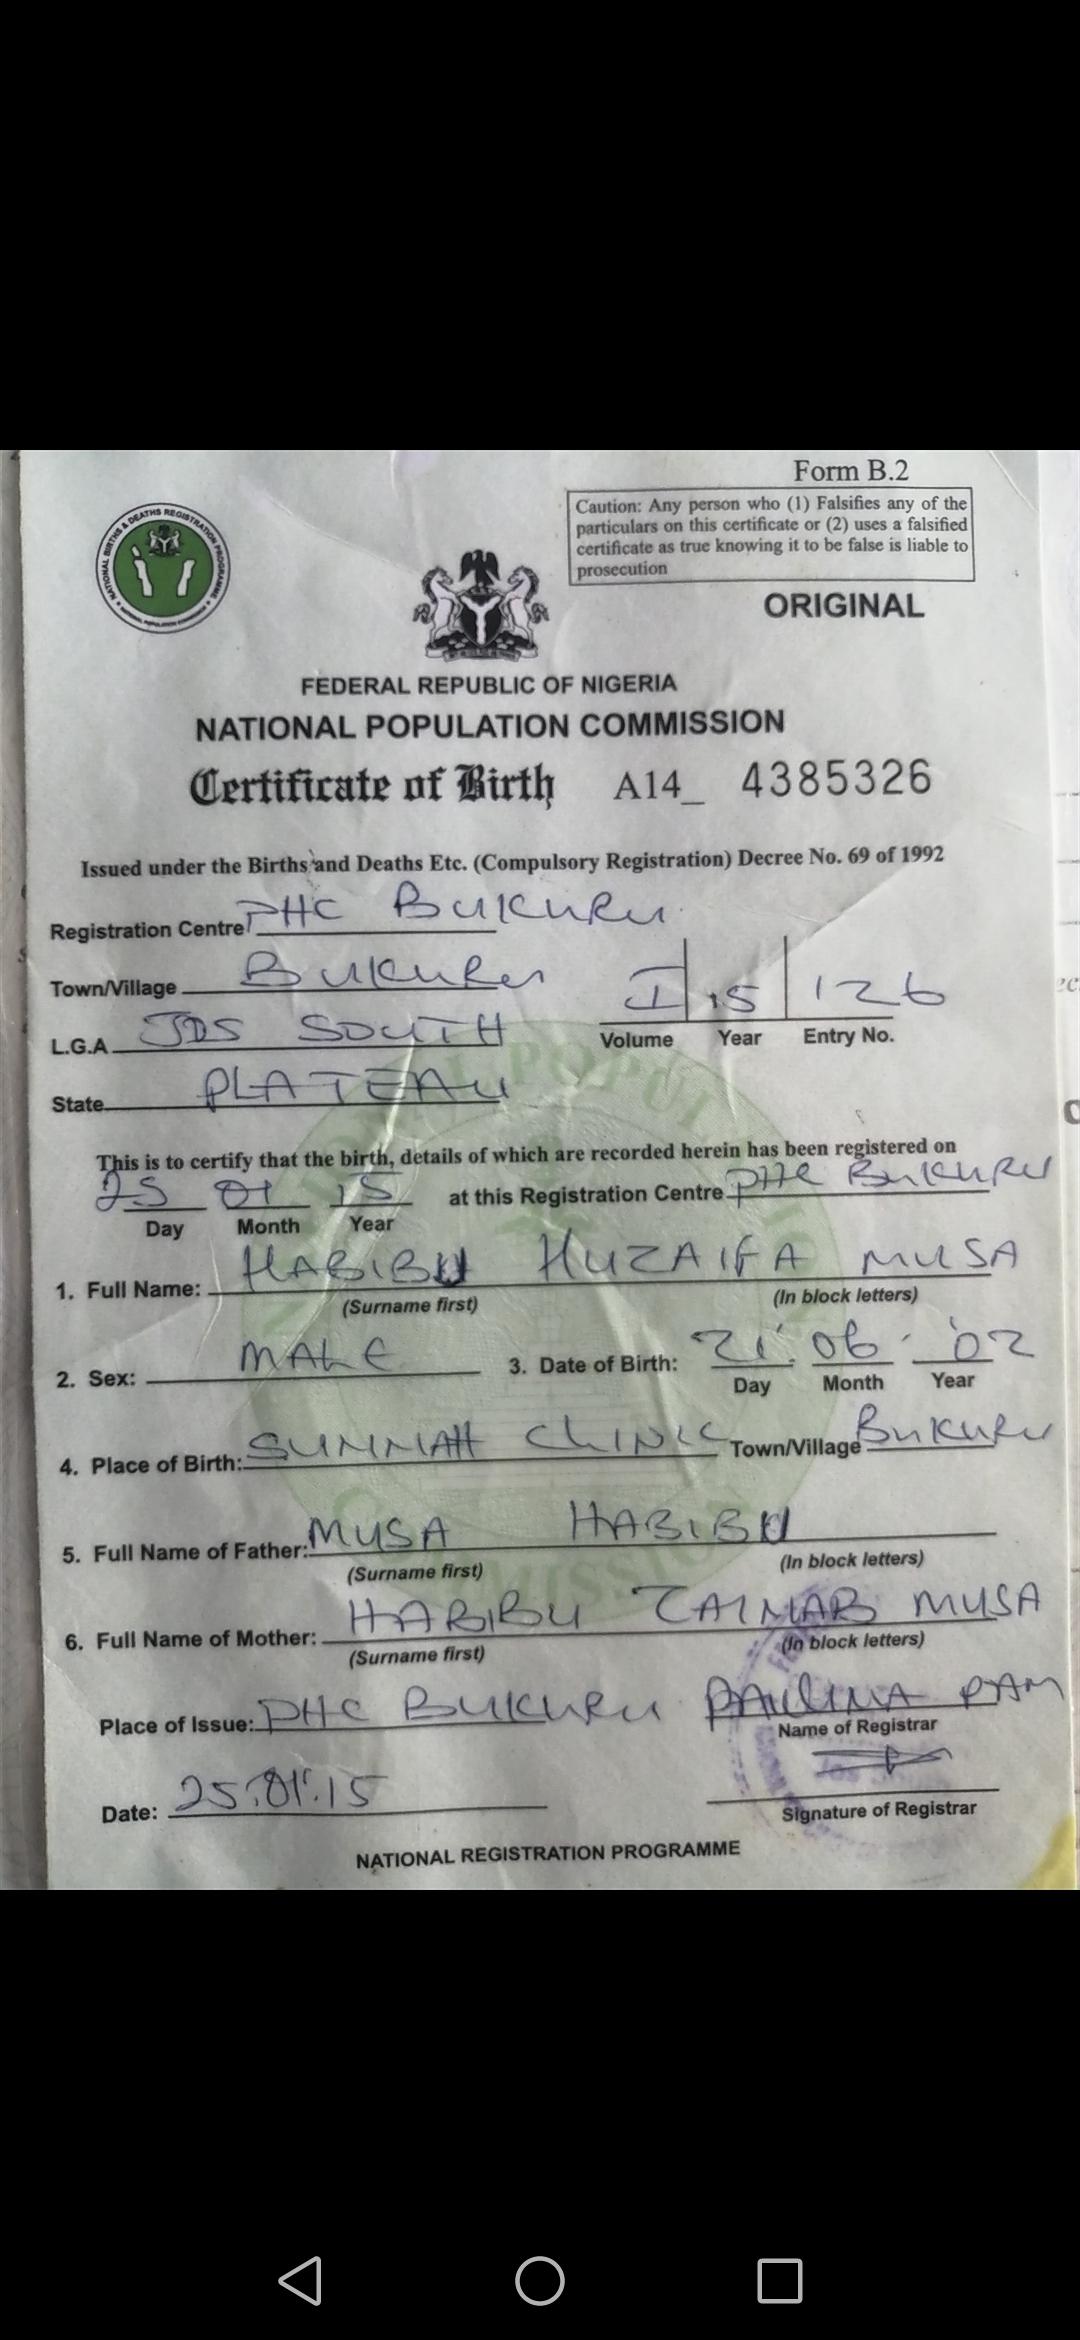 Form B.2
Caution: Any person who (1) Falsifies any of the
particulars on this certificate or (2) uses a falsified
certificate as true knowing it to be false is liable to
prosecution
NATIONAL BIRTHS & DEATHS REGISTRATION PROGRAMME
NATIONAL POPULATION COMMISSION
ORIGINAL
FEDERAL REPUBLIC OF NIGERIA
NATIONAL POPULATION COMMISSION
Certificate of Birth A14_ 4385326
Issued under the Births and Deaths Etc. (Compulsory Registration) Decree No. 69 of 1992
Registration Centre PHC BUKURU
Town/Village BUKURU I 15 126
Volume Year Entry No.
L.G.A JOS SOUTH
State PLATEAU
This is to certify that the birth, details of which are recorded herein has been registered on
25 01 15 at this Registration Centre PHC BUKURU
Day Month Year
1. Full Name: HABIBU HUZAIFA MUSA
(Surname first) (In block letters)
2. Sex: MALE 3. Date of Birth: 21 06 02
Day Month Year
4. Place of Birth: SUNNAH CLINIC Town/Village BUKURU
5. Full Name of Father: MUSA HABIBU
(Surname first) (In block letters)
6. Full Name of Mother: HABIBU ZAINAB MUSA
(Surname first) (In block letters)
Place of Issue: PHC BUKURU PAULINA PAM
Name of Registrar
Date: 25.01.15
Signature of Registrar
NATIONAL REGISTRATION PROGRAMME